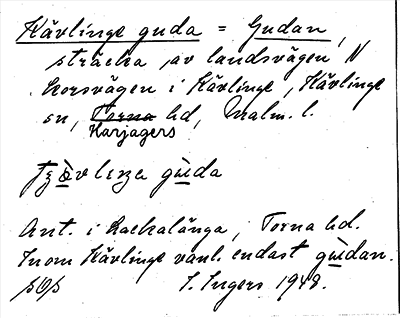 Kävlinge guda = Gudan,
sträcka av landsvägen N
korsvägen i Kävlinge, Kävlinge
sn, Torna hd, Malm. l.
Harjagers
gùda
Ant. i Lackalänga, Torna hd.
Inom Kävlinge vanl. endast gùdan.
I. Ingers 1948.